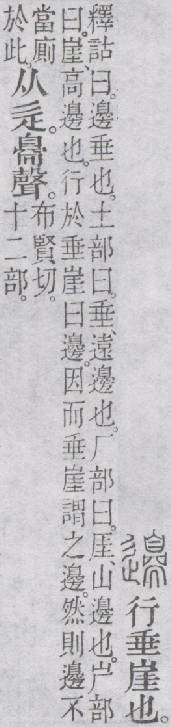 邊 行垂崖也。
釋詁曰。邊垂也。土部曰。垂、遠邊也。厂部曰。厓、山邊也。屵部
曰。崖、高邊也。行於垂崖曰邊。因而垂崖謂之邊。然則邊不
當廁
於此。
从辵。臱聲。
布賢切。
十二部。